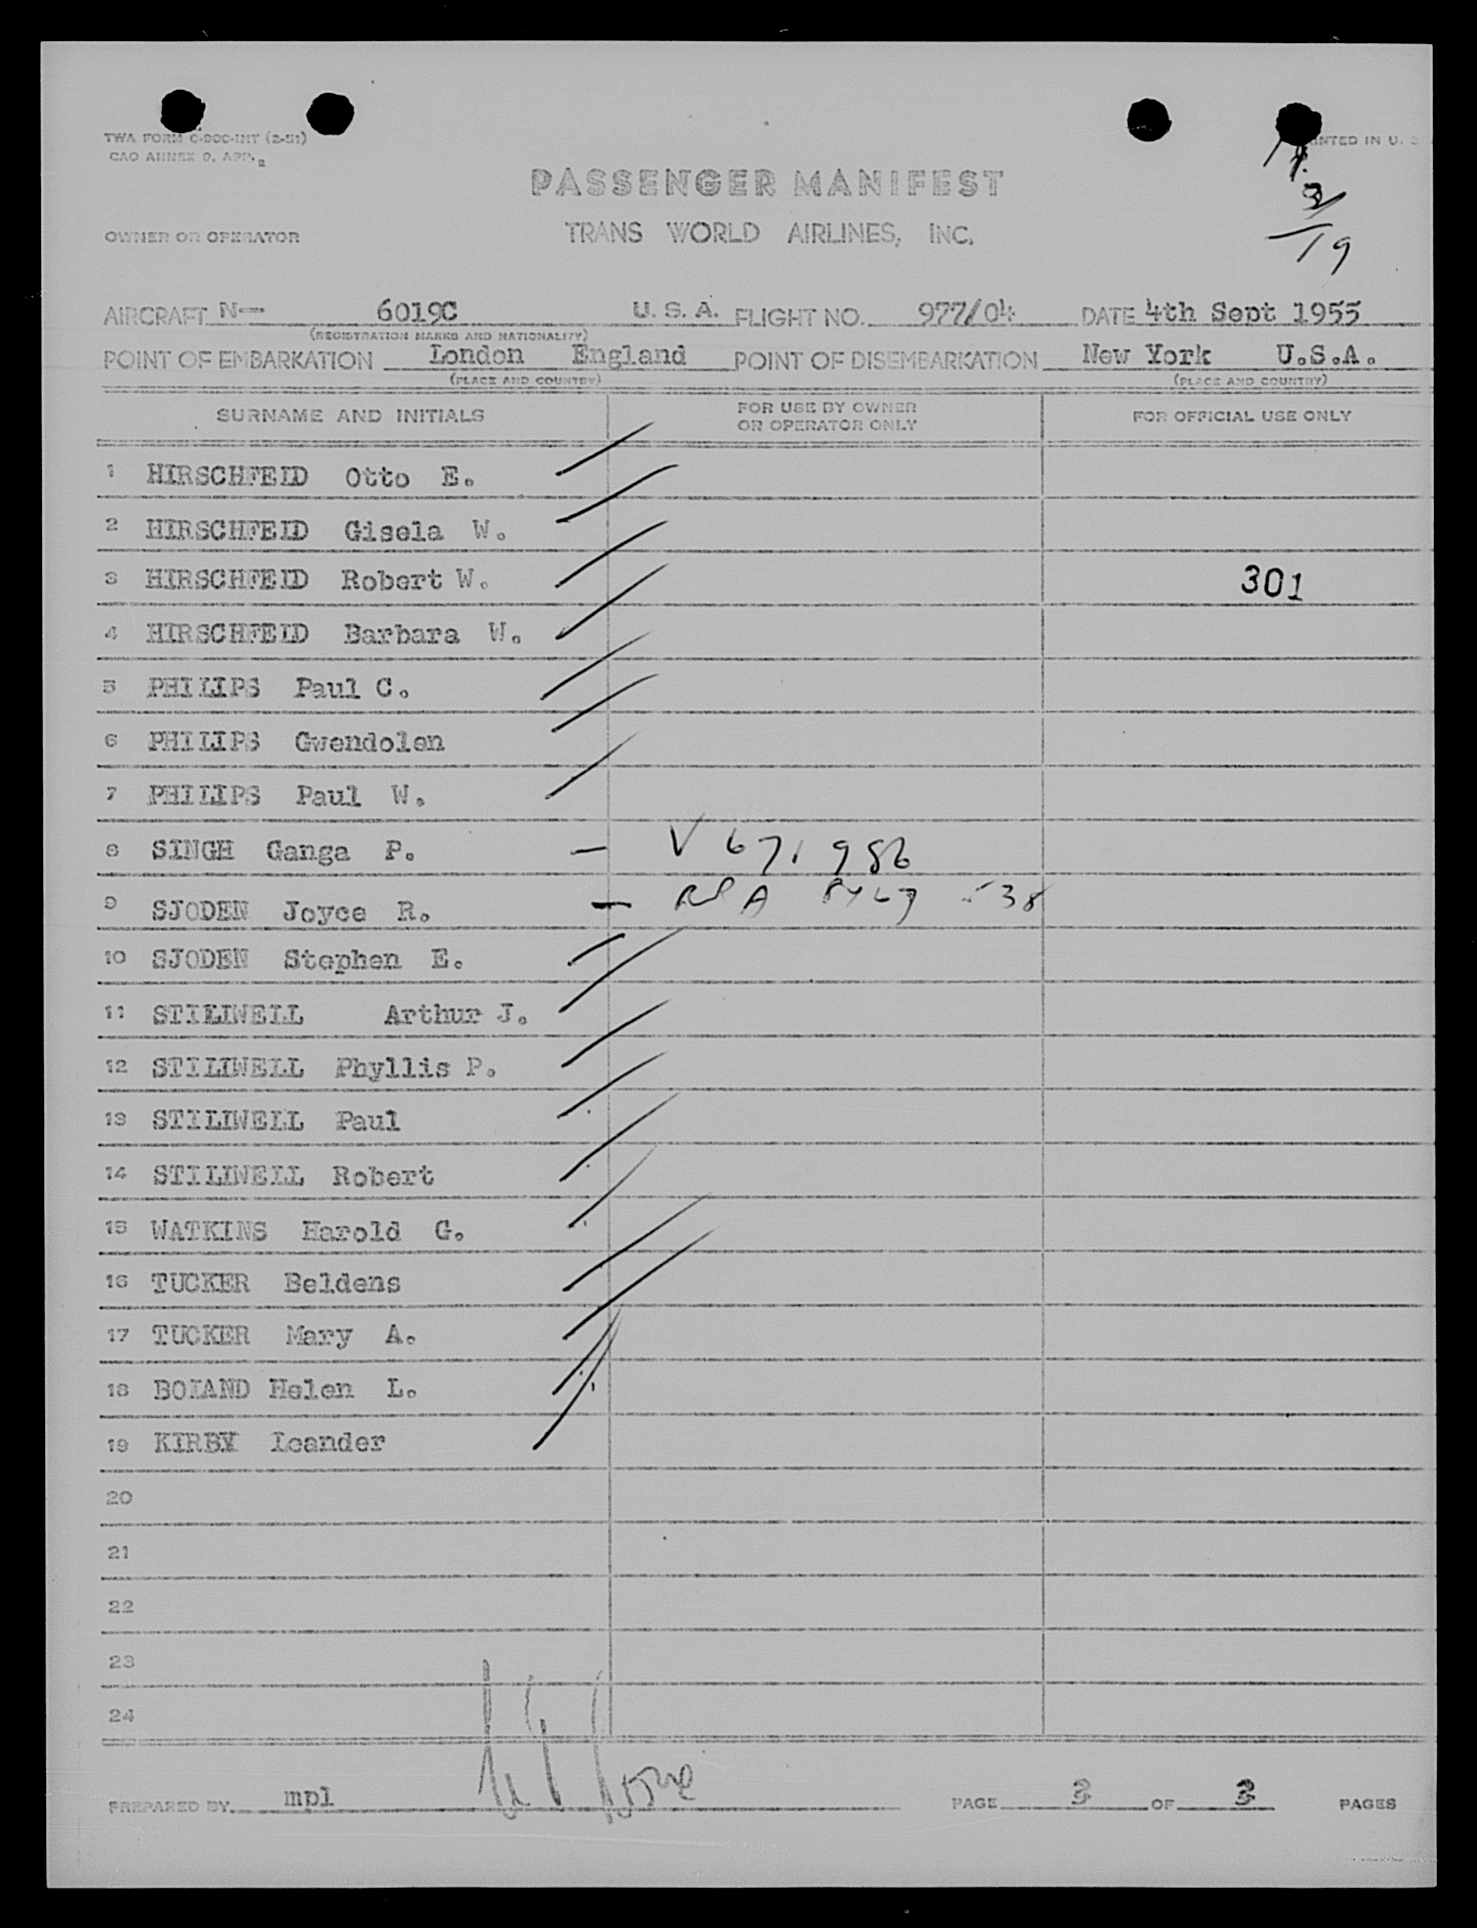 TWA FORM C-DOC-INT (2-51)
CAO ANNEX 9, APP. 2
PRINTED IN U. S.
PASSENGER MANIFEST
OWNER OR OPERATOR
TRANS WORLD AIRLINES, INC.
19
AIRCRAFT N— 6019C U. S. A. FLIGHT NO. 977/04 DATE 4th Sept 1955
(REGISTRATION MARKS AND NATIONALITY)
POINT OF EMBARKATION London England POINT OF DISEMBARKATION New York U.S.A.
(PLACE AND COUNTRY) (PLACE AND COUNTRY)
SURNAME AND INITIALS FOR USE BY OWNER OR OPERATOR ONLY FOR OFFICIAL USE ONLY
1 HIRSCHFELD Otto E.
2 HIRSCHFELD Gisela W.
3 HIRSCHFELD Robert W. 301
4 HIRSCHFELD Barbara W.
5 PHILIPS Paul C.
6 PHILIPS Gwendolen
7 PHILIPS Paul W.
8 SINGH Ganga P. — V 671986
9 SJODEN Joyce R. —
10 SJODEN Stephen E.
11 STILLWELL Arthur J.
12 STILLWELL Phyllis P.
13 STILLWELL Paul
14 STILLWELL Robert
15 WATKINS Harold G.
16 TUCKER Beldens
17 TUCKER Mary A.
18 BOLAND Helen L.
19 KIRBY Leander
20
21
22
23
24
PREPARED BY mpl PAGE 3 OF 3 PAGES